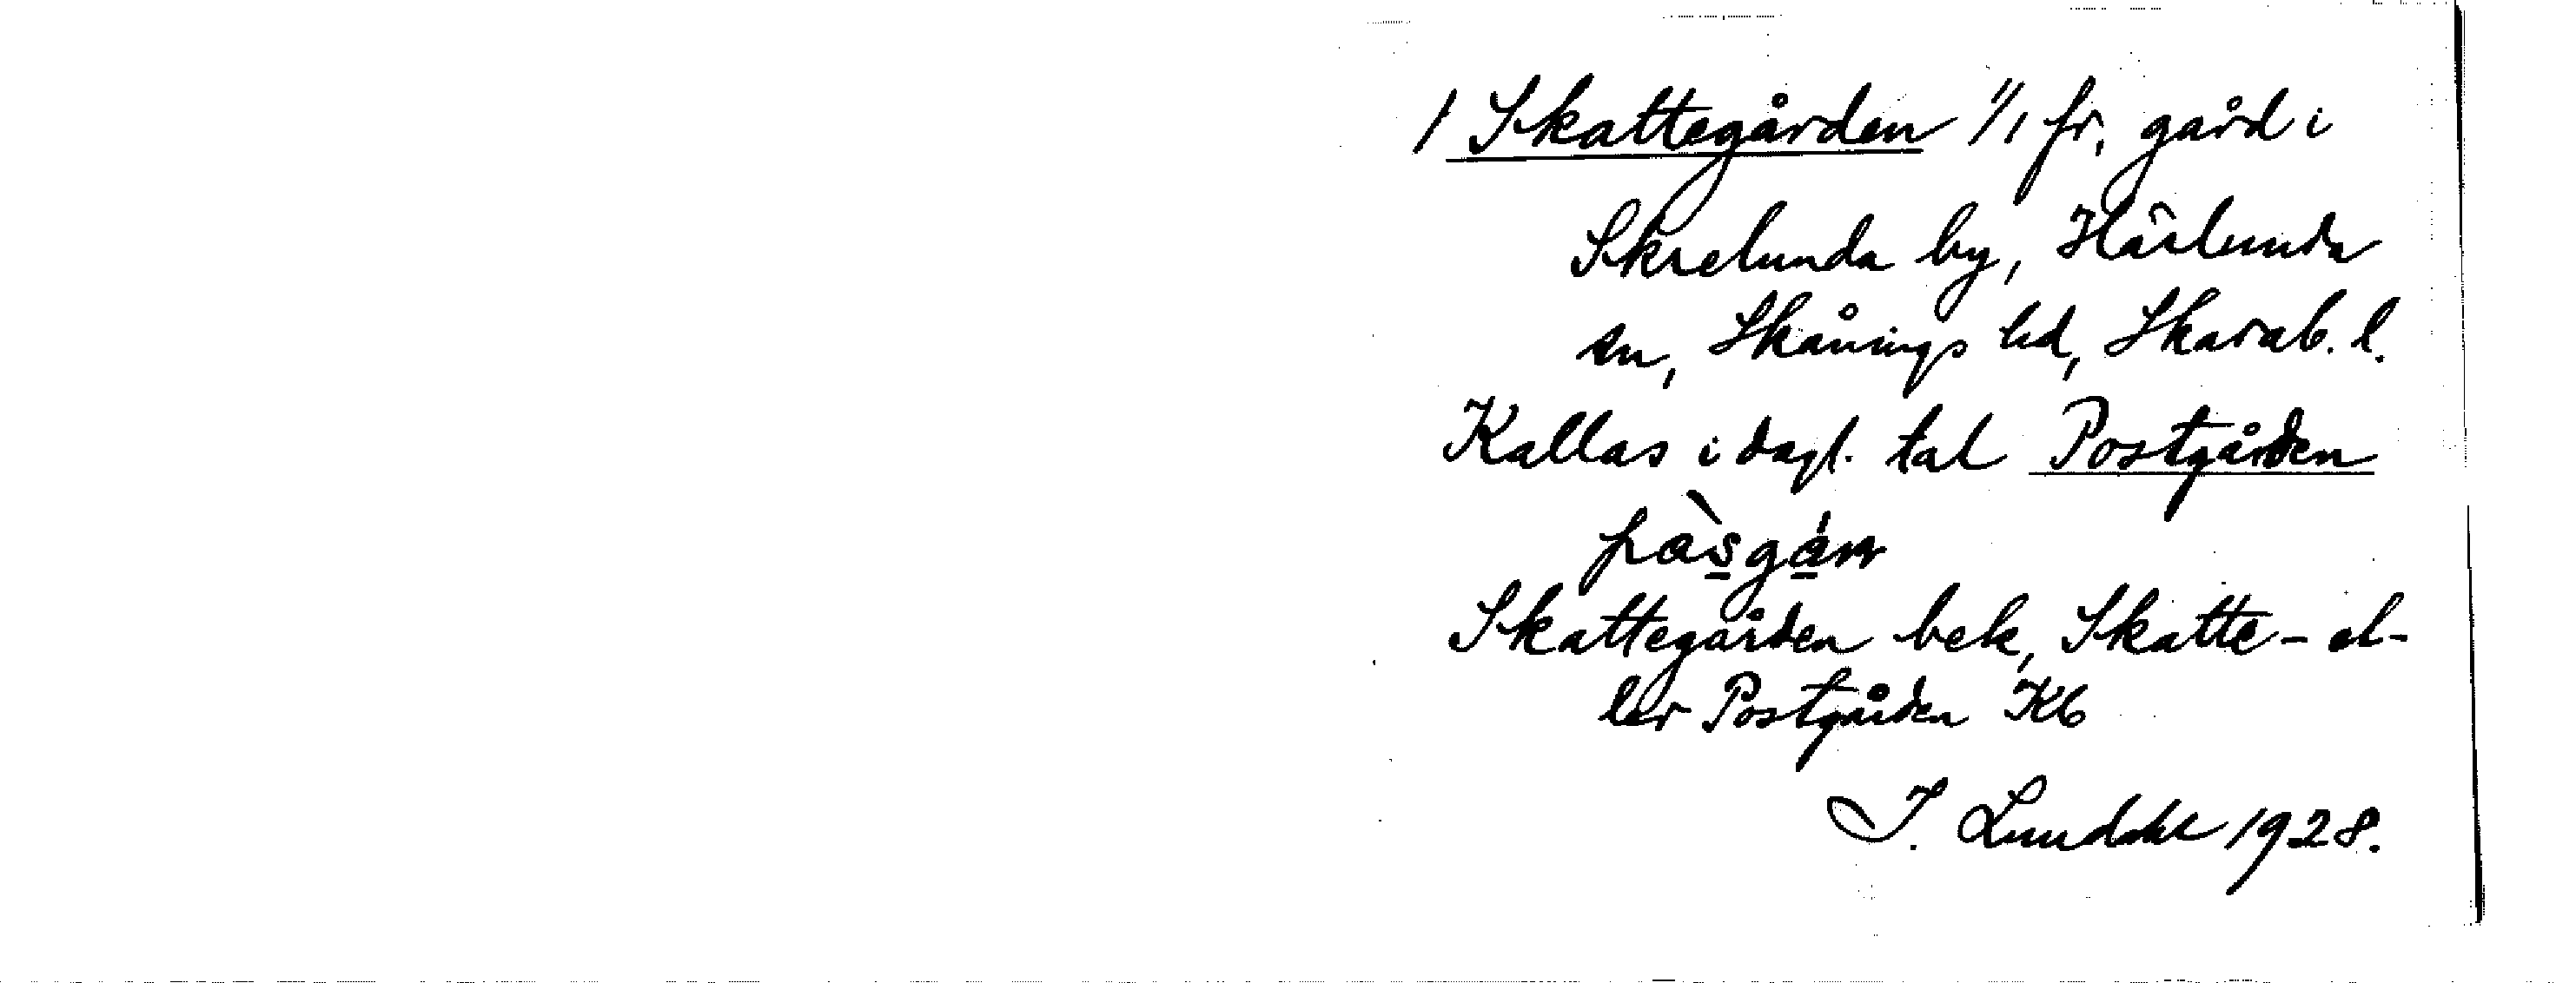 / Skattegården 1/1 fr, gård i
Skrelunda by, Härlunda
sn, Skånings hd, Skarab. l.
Kallas i dagl. tal Postgården
påsgán
Skattegården bek, Skatte- el-
ler Postgården Kb
I. Lundahl 1928.